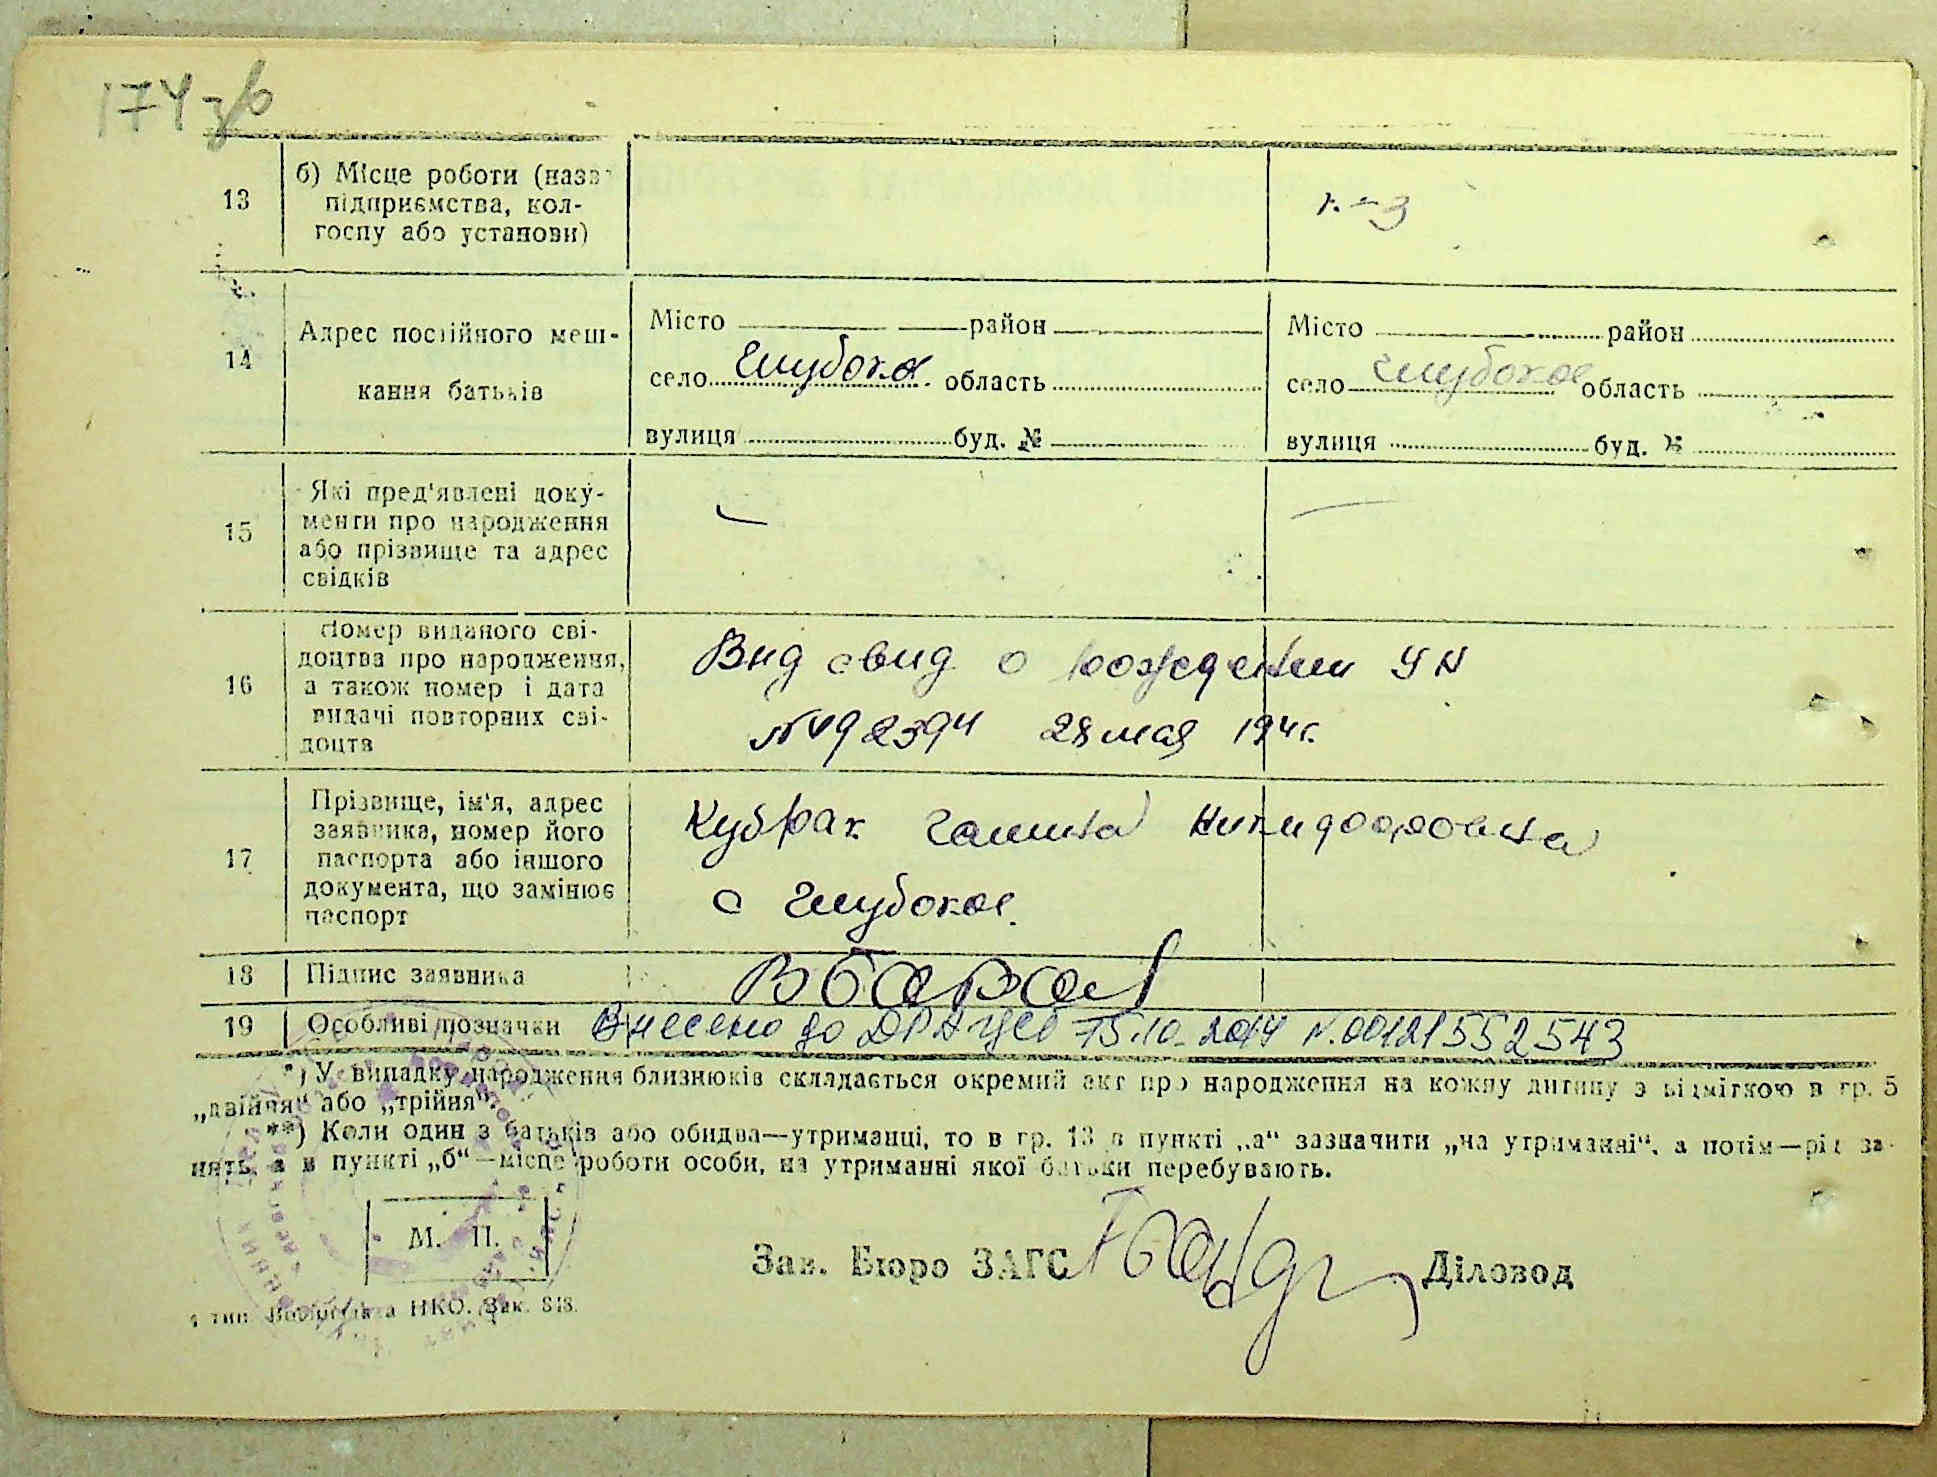 174 зв
13
б) Місце роботи (назва
підприємства, кол-
госпу або установи)
к-з
14
Адрес постійного меш-
кання батьків
Місто район
село Глубока область
вулиця буд. №
Місто район
село Глубокое область
вулиця буд. №
15
Які пред'явлені доку-
менти про народження
або прізвище та адрес
свідків
—
—
16
Номер виданого сві-
доцтва про народження,
а також номер і дата
видачі повторних сві-
доцтв
Выд свид о рождении УН
№ 492394 28 мая 194 г.
17
Прізвище, ім'я, адрес
заявника, номер його
паспорта або іншого
документа, що замінює
паспорт
Кубрак Галина Никифоровна
с Глубокое.
18 Підпис заявника
19 Особливі позначки Внесено до ДРАЦСГ 15.10.2014 N. 00121552543
*) У випадку народження близнюків складається окремий акт про народження на кожну дитину з відміткою в гр. 5
„двійня“ або „трійня“.
**) Коли один з батьків або обидва—утриманці, то в гр. 13 в пункті „а“ зазначити „на утриманні“, а потім—рід за-
нять, а в пункті „б“—місце роботи особи, на утриманні якої батьки перебувають.
М. П.
Зав. Бюро ЗАГС Діловод
НКО. Зак. 848.